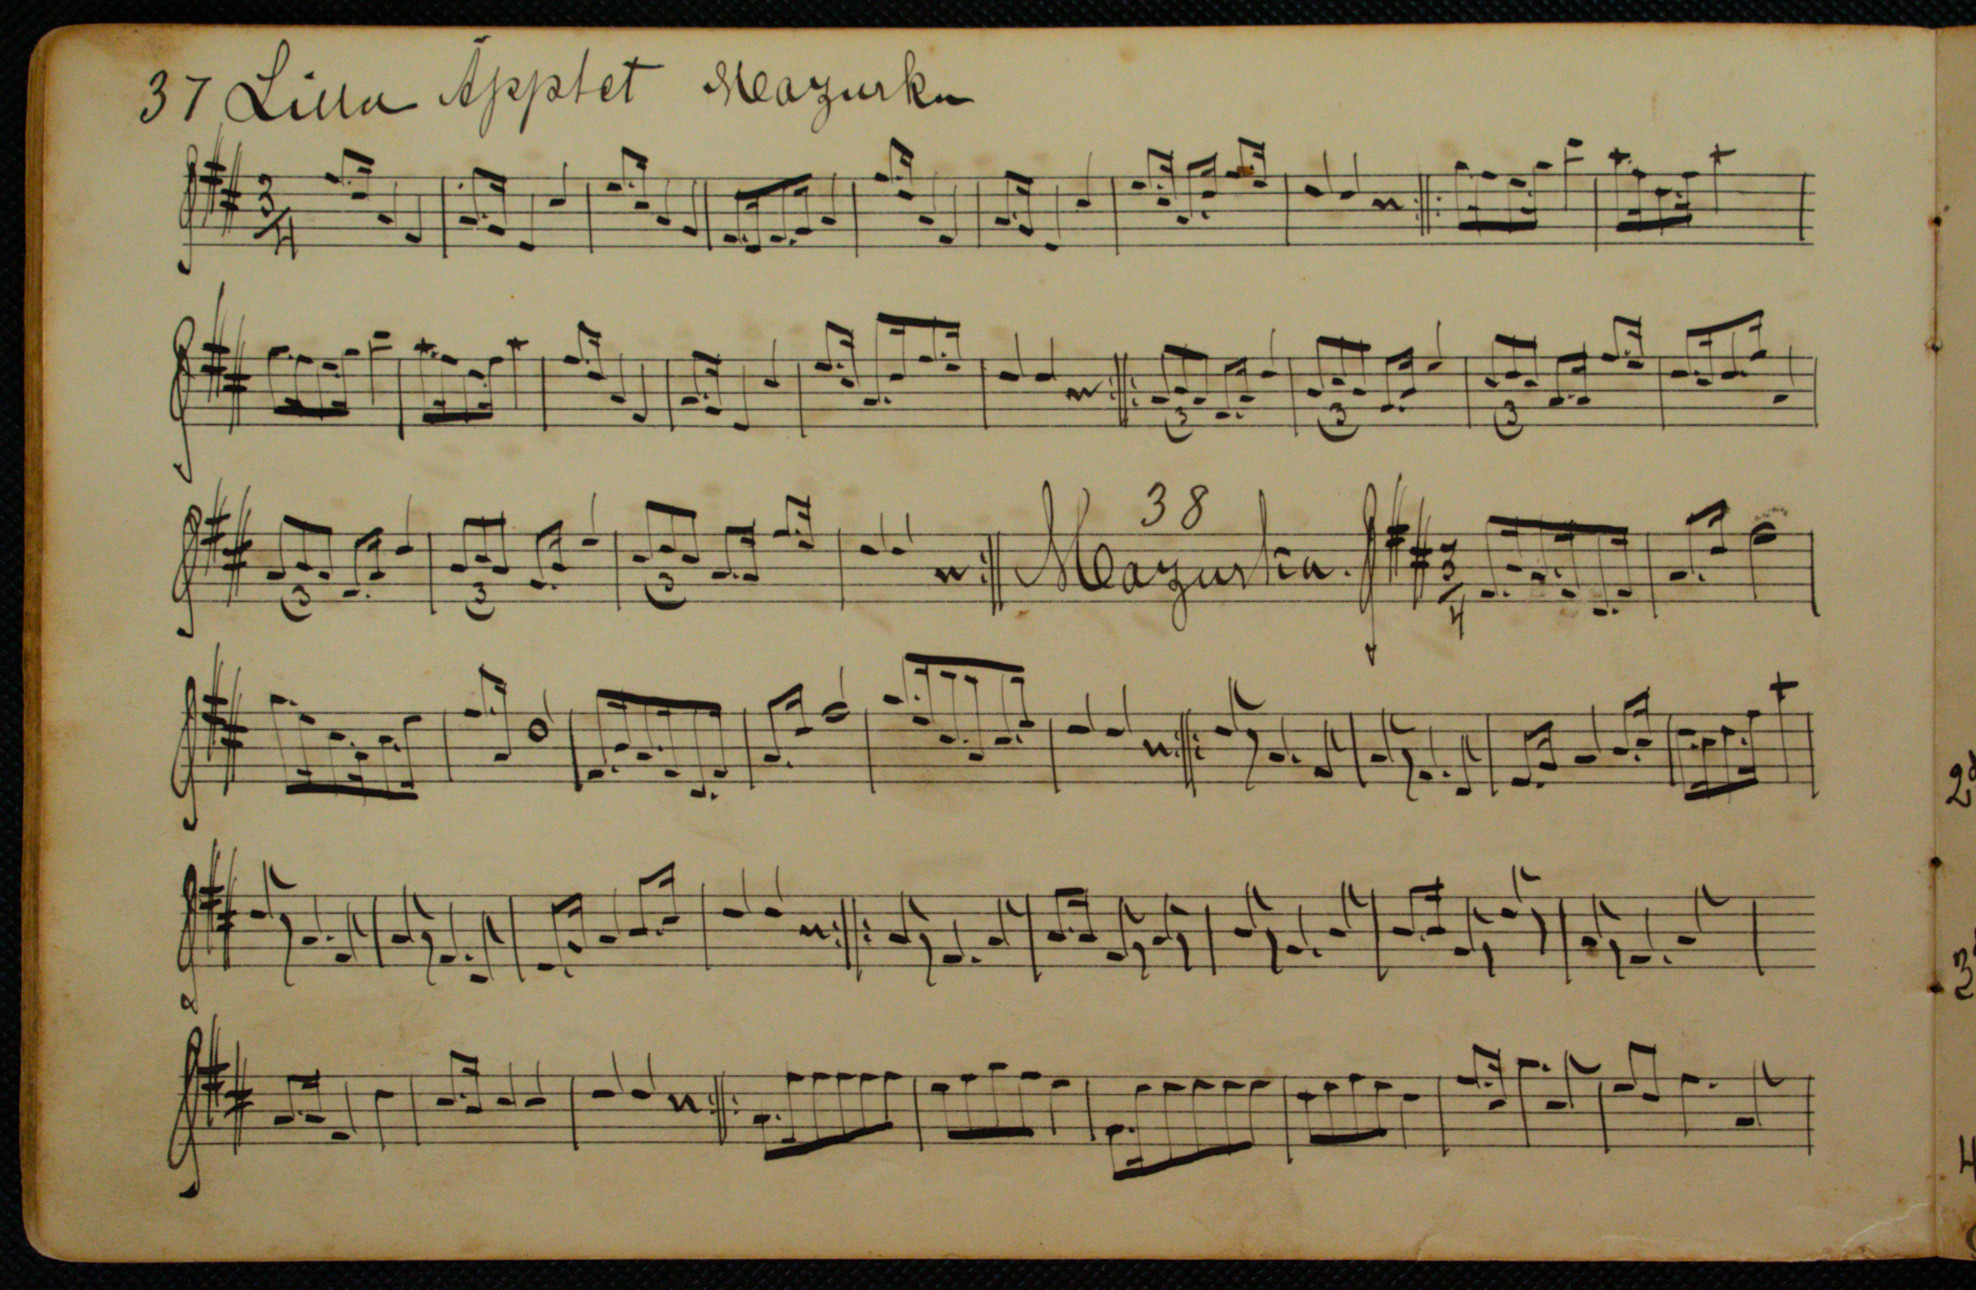 37 Lilla Äpplet Mazurka
3/4
3 3 3
3 3 3
38
Mazurka.
3/4